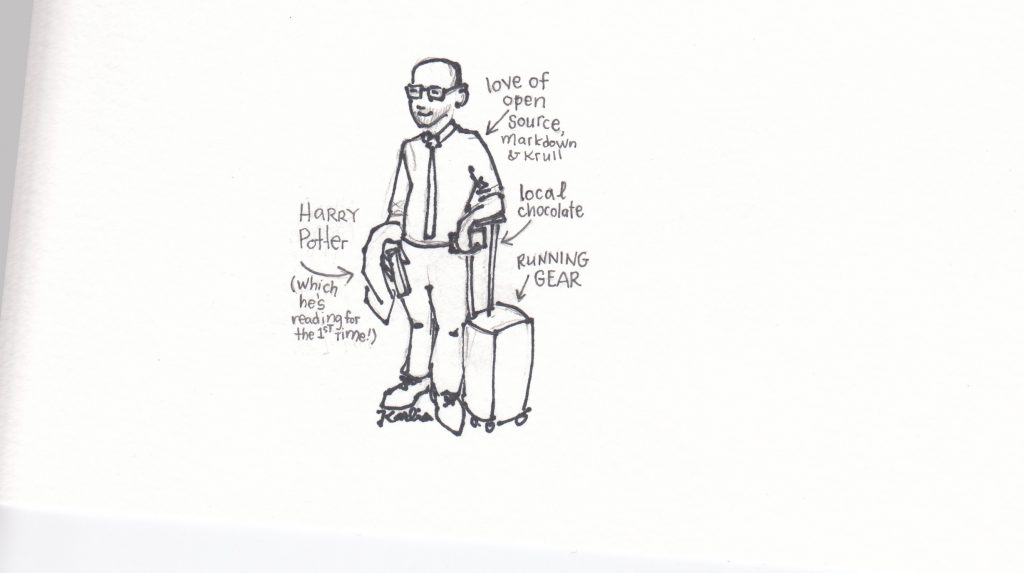 love of
open
source,
markdown
& Krull
local
chocolate
RUNNING
GEAR
HARRY
Potter
(which
he's
reading for
the 1ST Time!)